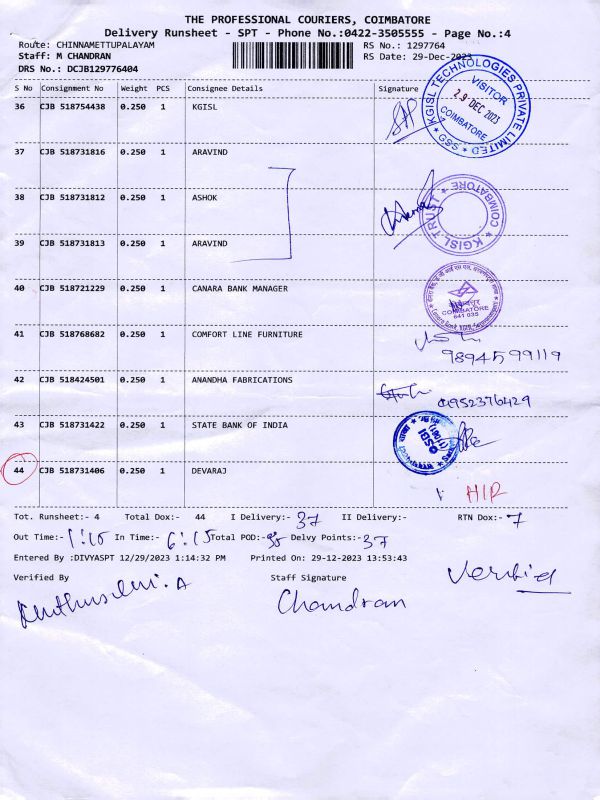 THE PROFESSIONAL COURIERS, COIMBATORE
Delivery Runsheet - SPT - Phone No.:0422-3505555 - Page No.:4
Route: CHINNAMETTUPALAYAM RS No.: 1297764
Staff: M CHANDRAN RS Date: 29-Dec-2023
DRS No.: DCJB129776404
S No Consignment No Weight PCS Consignee Details Signature
36 CJB 518754438 0.250 1 KGISL
KGISL TECHNOLOGIES PRIVATE LIMITED
VISITOR
29 DEC 2023
COIMBATORE
GSS
37 CJB 518731816 0.250 1 ARAVIND
38 CJB 518731812 0.250 1 ASHOK
KGISL TRUST
COIMBATORE
39 CJB 518731813 0.250 1 ARAVIND
40 CJB 518721229 0.250 1 CANARA BANK MANAGER
COIMBATORE
641 035
41 CJB 518768682 0.250 1 COMFORT LINE FURNITURE
9894599119
42 CJB 518424501 0.250 1 ANANDHA FABRICATIONS
9952376429
43 CJB 518731422 0.250 1 STATE BANK OF INDIA
SBI
44 CJB 518731406 0.250 1 DEVARAJ
Tot. Runsheet:- 4 Total Dox:- 44 I Delivery:- 37 II Delivery:- RTN Dox:- 7
Out Time:- In Time:- 6:15 Total POD:- Delvy Points:- 37
Entered By :DIVYASPT 12/29/2023 1:14:32 PM Printed On: 29-12-2023 13:53:43
Verified By Staff Signature
Chandran